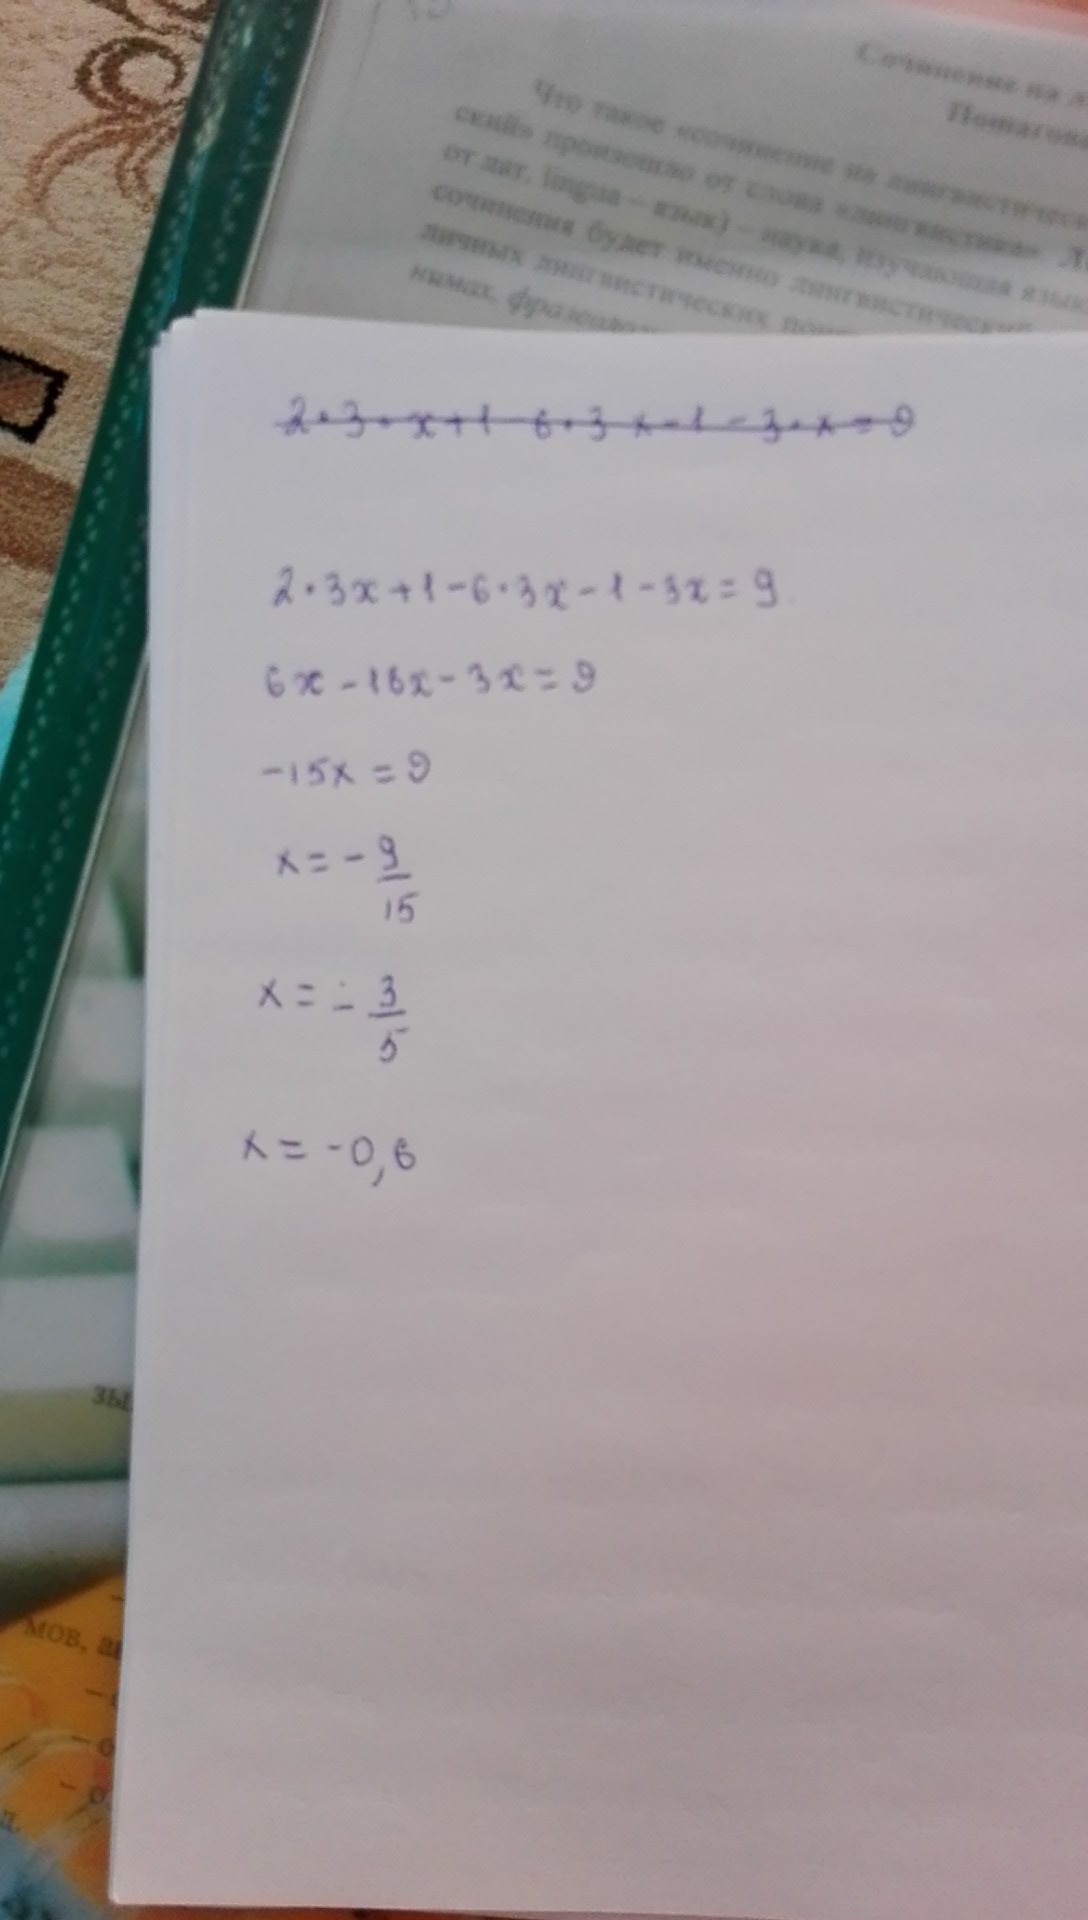 Сочинение на
Что такое «сочинение на лингвистическ
ский» произошло от слова «лингвистика». Л
от лат. lingua – язык) – наука, изучающая язык
сочинения будет именно лингвистический
личных лингвистических
нимах,
2·3·x+1-6·3x-1-3·x=9
2·3x+1-6·3x-1-3x=9
6x-18x-3x=9
-15x=9
x=-9/15
x=-3/5
x=-0,6
зы
мов,